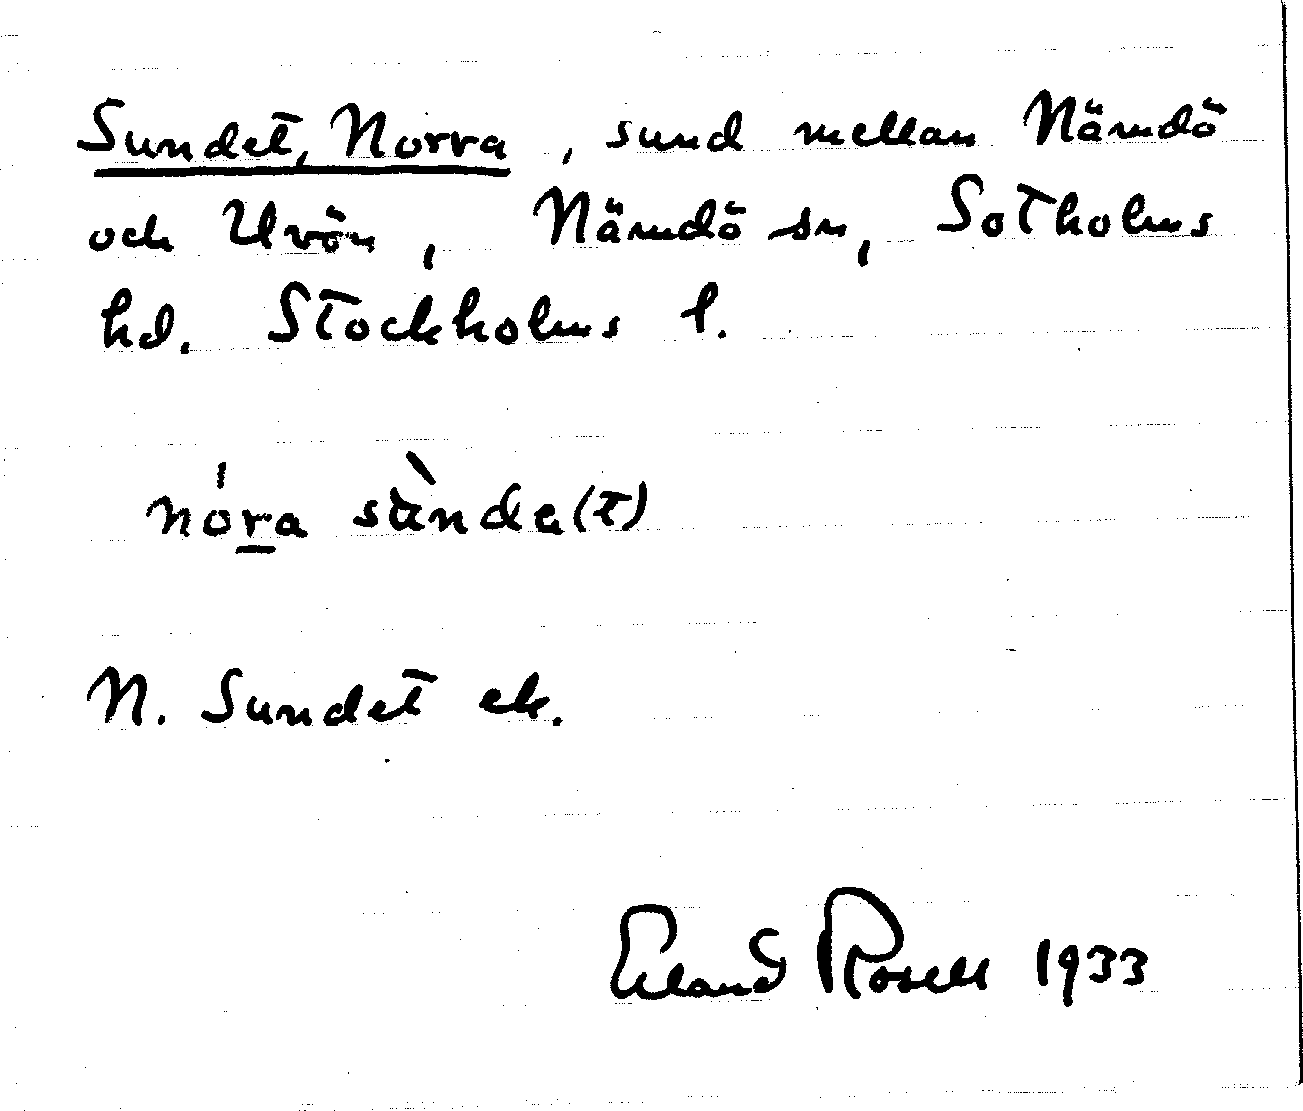 Sundet, Norra, sund mellan Nämdö
och Uvön, Nämdö sn, Sotholms
hd. Stockholms l.
nóra sùnde(t)
N. Sundet ek.
Erland Rosell 1933